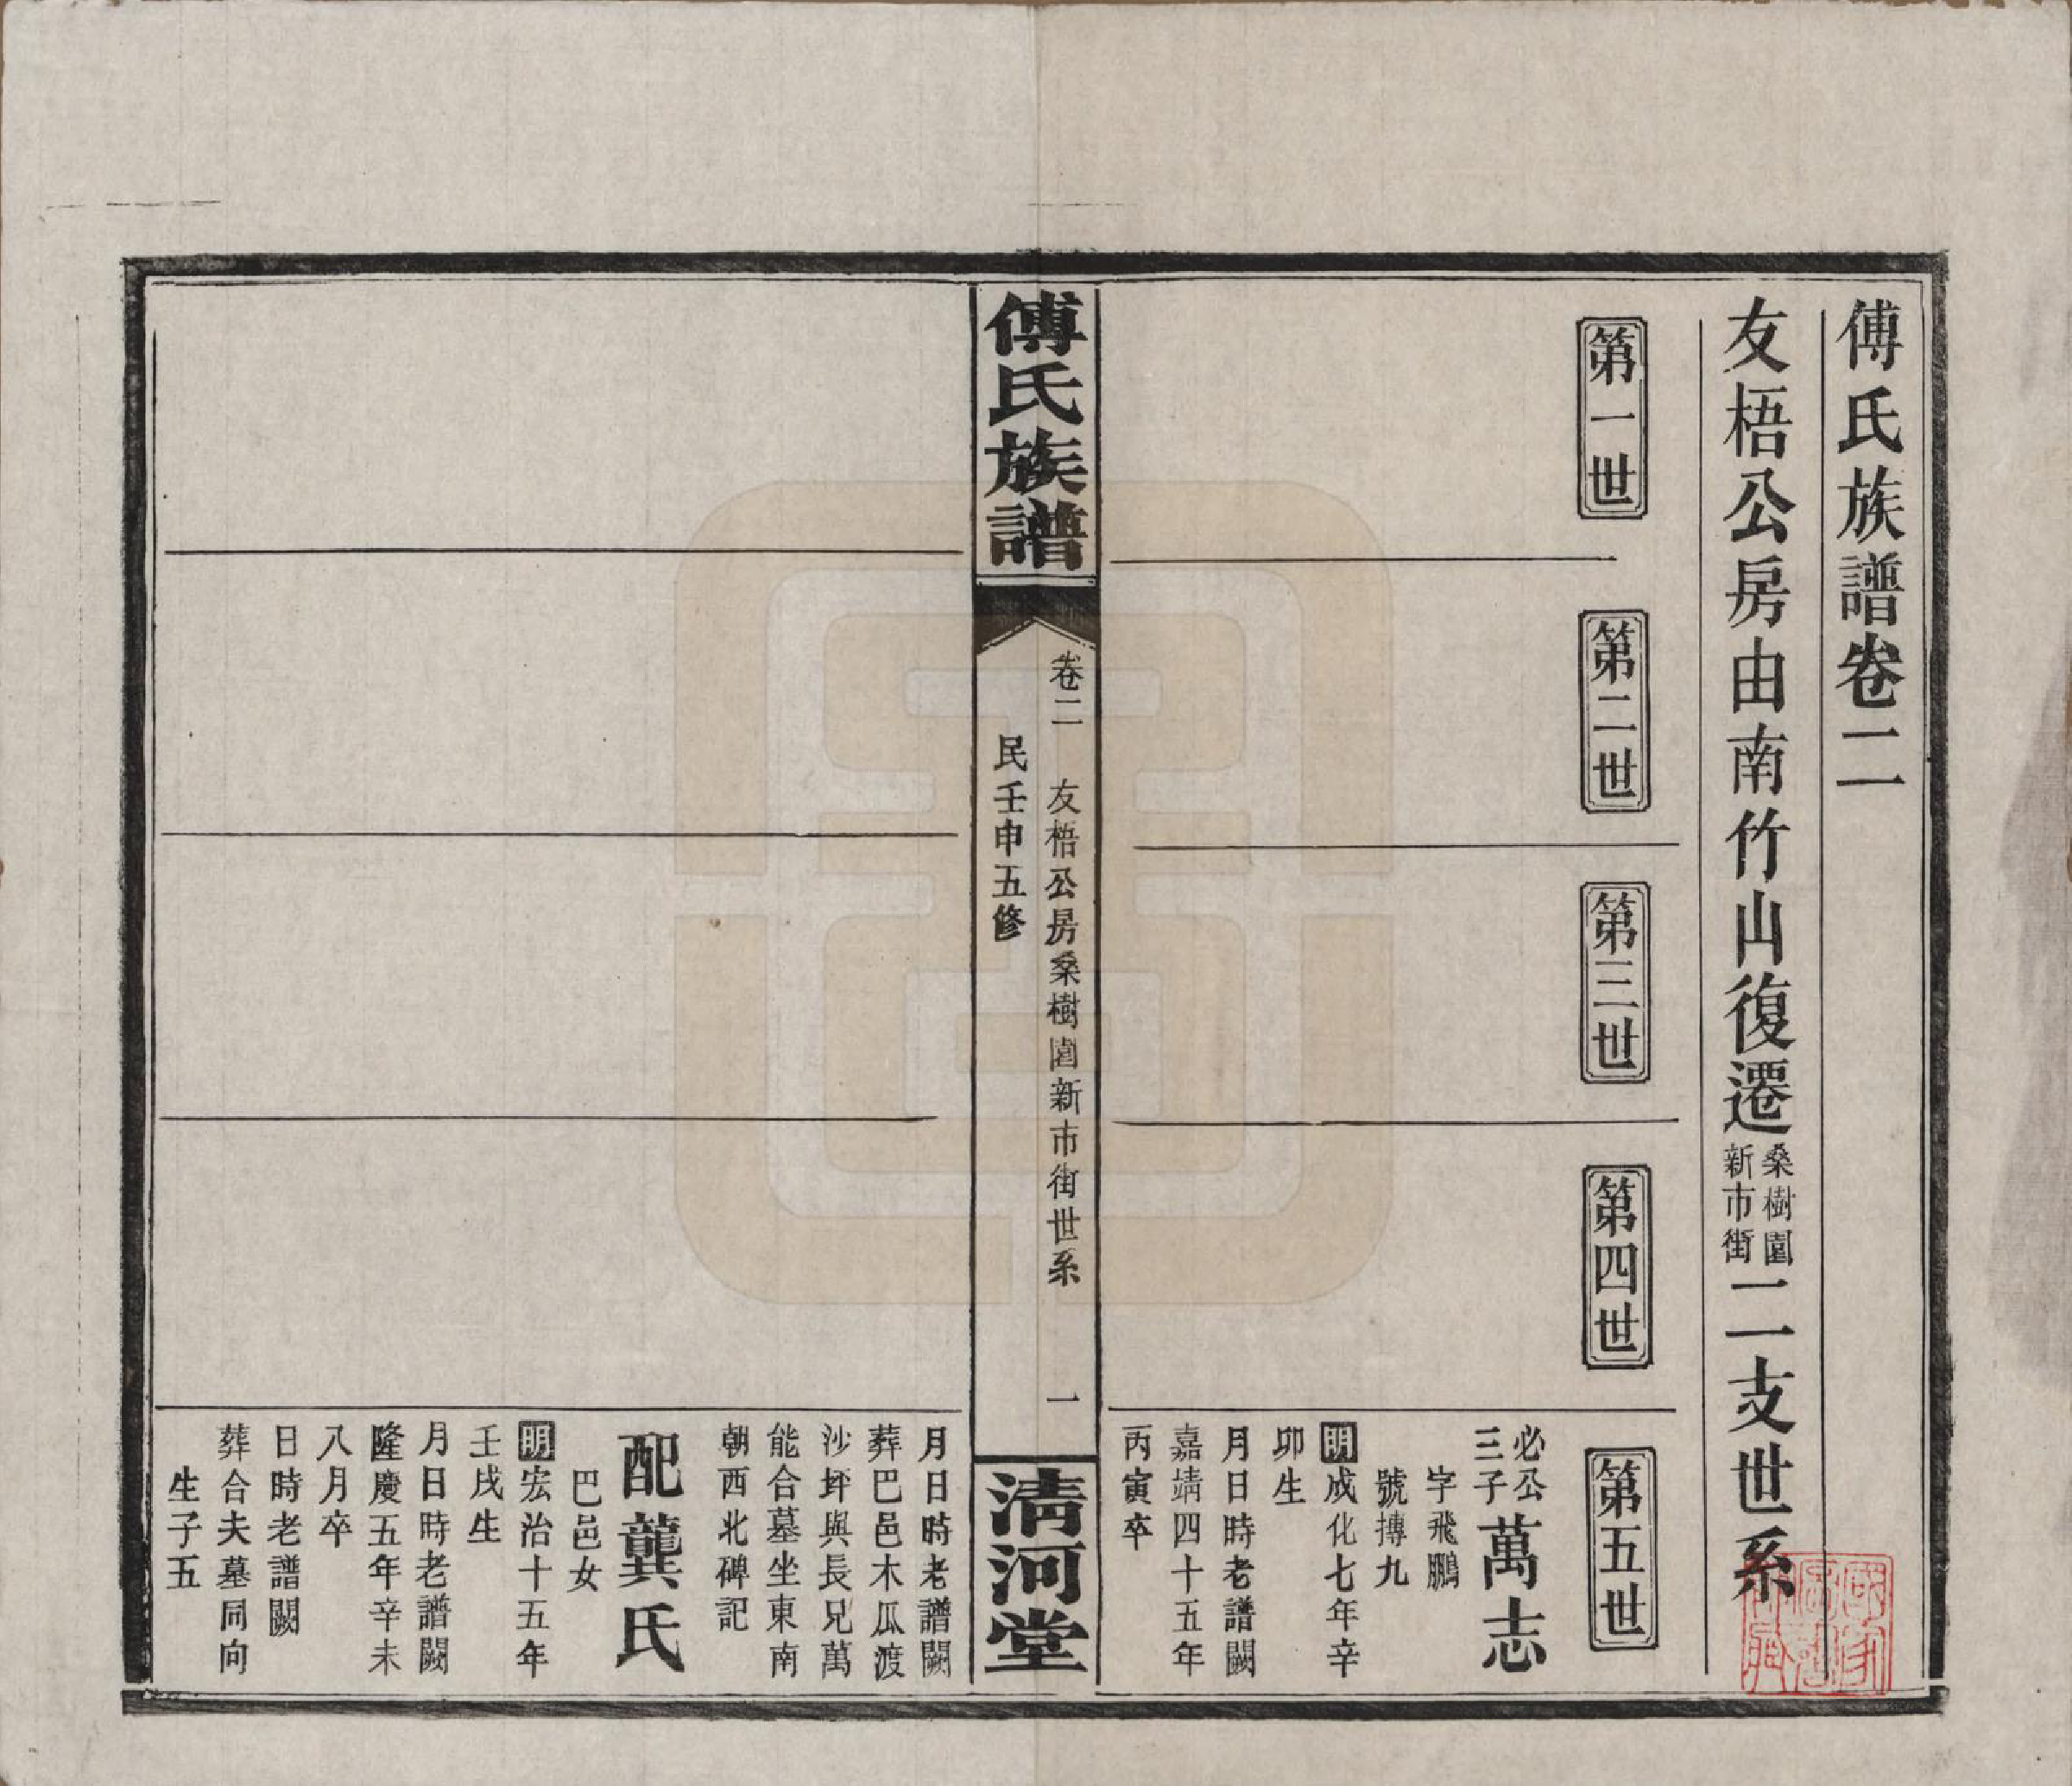 傅氏族譜卷二
友梧公房由南竹山復遷桑樹園新市街二支世系
第一世
第二世
第三世
第四世
第五世
必公
三子
萬志
字飛鵬
號摶九
明成化七年辛
卯生
月日時老譜闕
嘉靖四十五年
丙寅卒
傅氏族譜
卷二 友梧公房桑樹園新市街世系 一
民壬申五修
清河堂
月日時老譜闕
葬巴邑木瓜渡
沙坪與長兄萬
能合墓坐東南
朝西北碑記
配龔氏
巴邑女
明宏治十五年
壬戌生
月日時老譜闕
隆慶五年辛未
八月卒
日時老譜闕
葬合夫墓同向
生子五